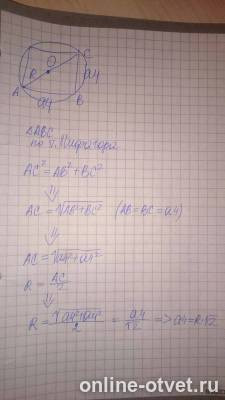 O
C
R
a4
A
B
a4
△ABC
по т. Пифагора
AC² = AB² + BC²
⇓
AC = √AB²+BC² (AB=BC=a4)
⇓
AC = √a4²+a4²
R = AC/2
⇓
R = √a4²+a4²/2 = a4/√2 => a4=R·√2
online-otvet.ru